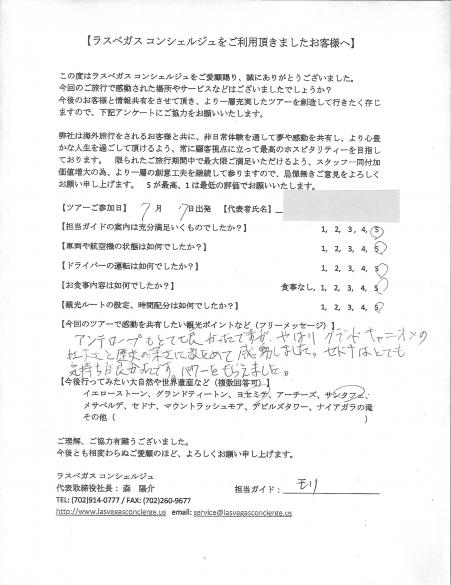 【ラスベガス コンシェルジュをご利用頂きましたお客様へ】
この度はラスベガス コンシェルジュをご愛顧賜り、誠にありがとうございました。
今回のご旅行で感動された場所やサービスなどはございましたでしょうか？
今後のお客様と情報共有をさせて頂き、より一層充実したツアーを創造して行きたく存じ
ますので、下記アンケートにご協力をお願いいたします。
弊社は海外旅行をされるお客様と共に、非日常体験を通して夢や感動を共有し、より心豊
かな人生を過ごして頂けるよう、常に顧客視点に立って最高のホスピタリティーを目指し
ております。 限られたご旅行期間中で最大限ご満足いただけるよう、スタッフ一同付加
価値増大の為、より一層の創意工夫を継続して参りますので、忌憚無きご意見をよろしく
お願い申し上げます。 5が最高、1は最低の評価でお願いいたします。
【ツアーご参加日】 7 月 7日出発 【代表者氏名】
【担当ガイドの案内は充分満足いくものでしたか？】 1, 2, 3, 4, 5
【車両や航空機の状態は如何でしたか？】 1, 2, 3, 4, 5
【ドライバーの運転は如何でしたか？】 1, 2, 3, 4, 5
【お食事内容は如何でしたか？】 食事なし, 1, 2, 3, 4, 5
【観光ルートの設定、時間配分は如何でしたか？】 1, 2, 3, 4, 5
【今回のツアーで感動を共有したい観光ポイントなど（フリーメッセージ）】
アンテロープもとても良かったですが、やはりグランドキャニオンの
壮大さと歴史の深さに改めて感動しました。セドナはとても
気持ちが良かったです。パワーをもらえました。
【今後行ってみたい大自然や世界遺産など（複数回答可）】
イエローストーン、グランドティートン、ヨセミテ、アーチーズ、サンタフェ、
メサベルデ、セドナ、マウントラッシュモア、デビルズタワー、ナイアガラの滝
その他（ ）
ご理解、ご協力有難うございました。
今後とも相変わらぬご愛顧のほど、よろしくお願い申し上げます。
ラスベガス コンシェルジュ
代表取締役社長： 森 陽介 担当ガイド： モリ
TEL: (702)914-0777 / FAX: (702)260-9677
http://www.lasvegasconcierge.us email: service@lasvegasconcierge.us